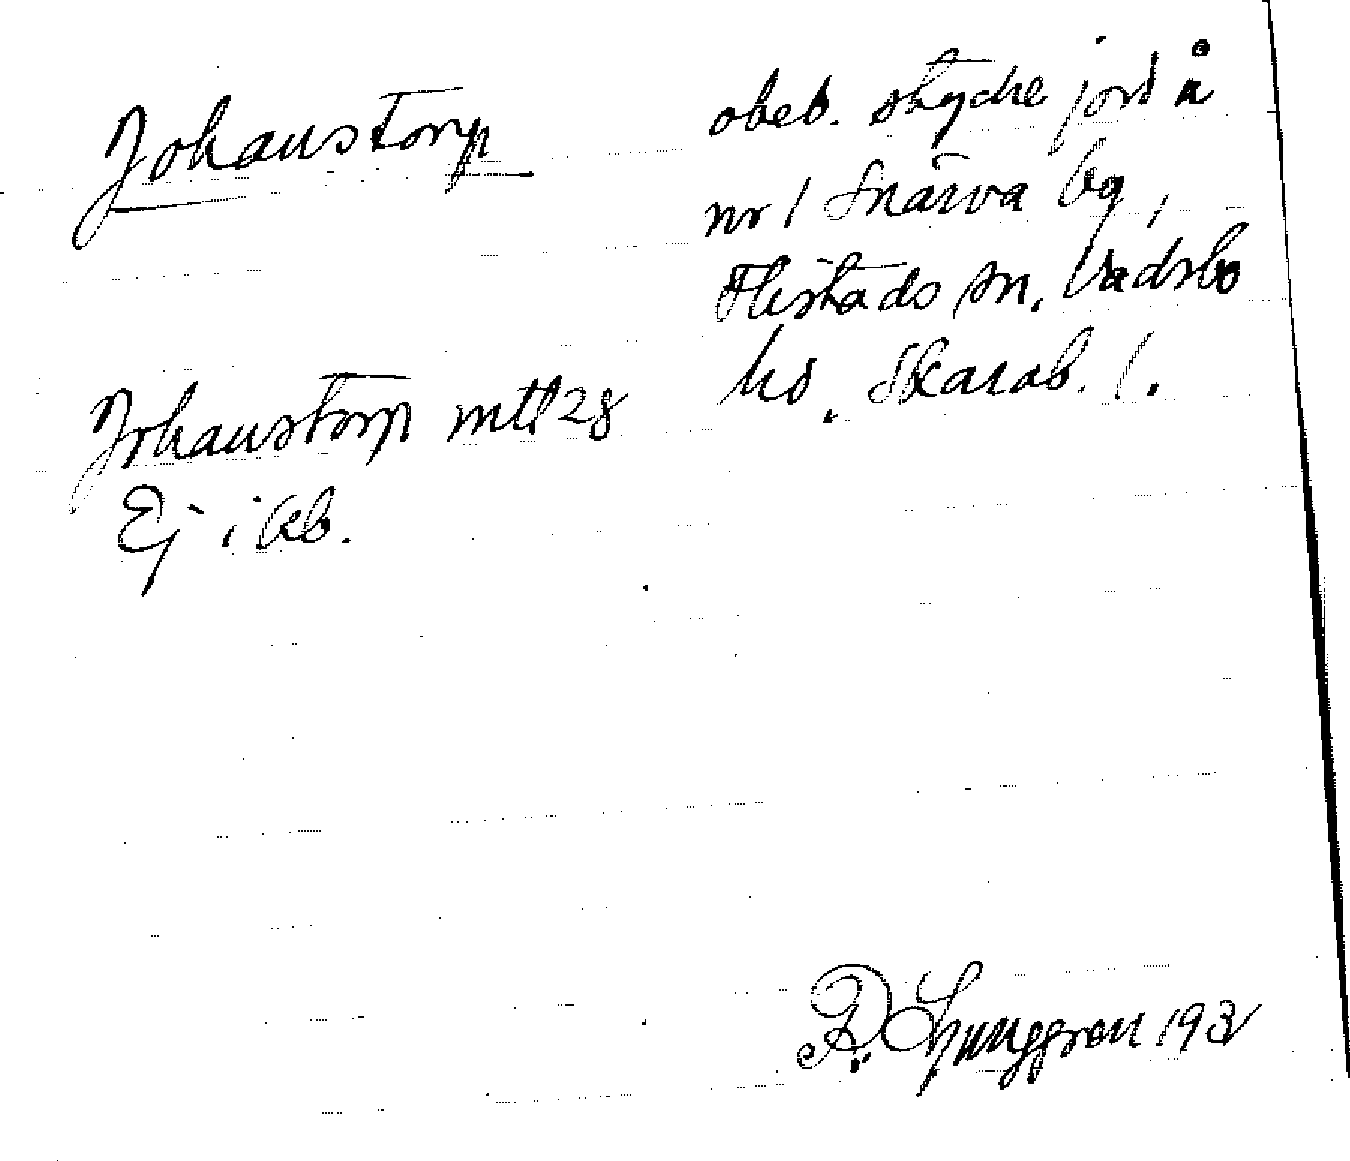 Johanstorp
obeb. stycke jord å
nr 1 Snärva by,
Flistads sn. Vadsbo
hd. Skarab. l.
Johanstorp mtl 28
Ej i kb.
R. Ljunggren 193